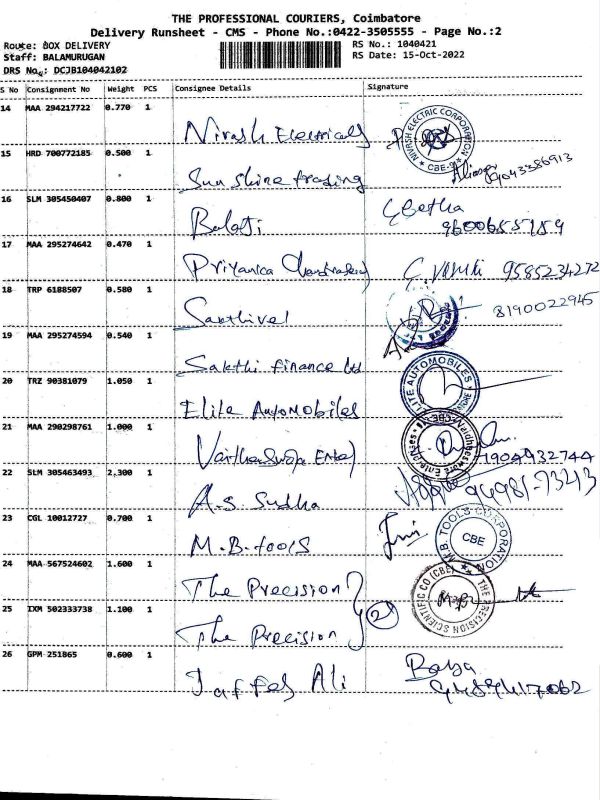 THE PROFESSIONAL COURIERS, Coimbatore
Delivery Runsheet - CMS - Phone No.:0422-3505555 - Page No.:2
Route: BOX DELIVERY RS No.: 1040421
Staff: BALAMURUGAN RS Date: 15-Oct-2022
DRS No.: DCJB104042102
S No Consignment No Weight PCS Consignee Details Signature
14 MAA 294217722 0.770 1
Nivash Electricals NIVASH ELECTRIC CORPORATION * CBE-9 *
15 HRD 700772185 0.500 1
Sunshine trading 9043386913
16 SLM 305450407 0.800 1
Balaji Geetha
9600655759
17 MAA 295274642 0.470 1
Priyanka 9585234272
18 TRP 6188507 0.580 1
Sakthivel 8190022945
19 MAA 295274594 0.540 1
Sakthi finance ltd
20 TRZ 90381079 1.050 1
Elite Automobiles ELITE AUTOMOBILES
21 MAA 290298761 1.000 1
Enterprises
22 SLM 305463493 2,300 1
A.S. Sudha 94981-73213
23 CGL 10012727 0.700 1
M.B. tools M.B. TOOLS CORPORATION CBE
24 MAA 567524602 1.600 1
The Precision THE PRECISION SCIENTIFIC CO (CBE)
25 IXM 502333738 1.100 1
The Precision 2
26 GPM 251865 0.600 1
Jaffer Ali Baba